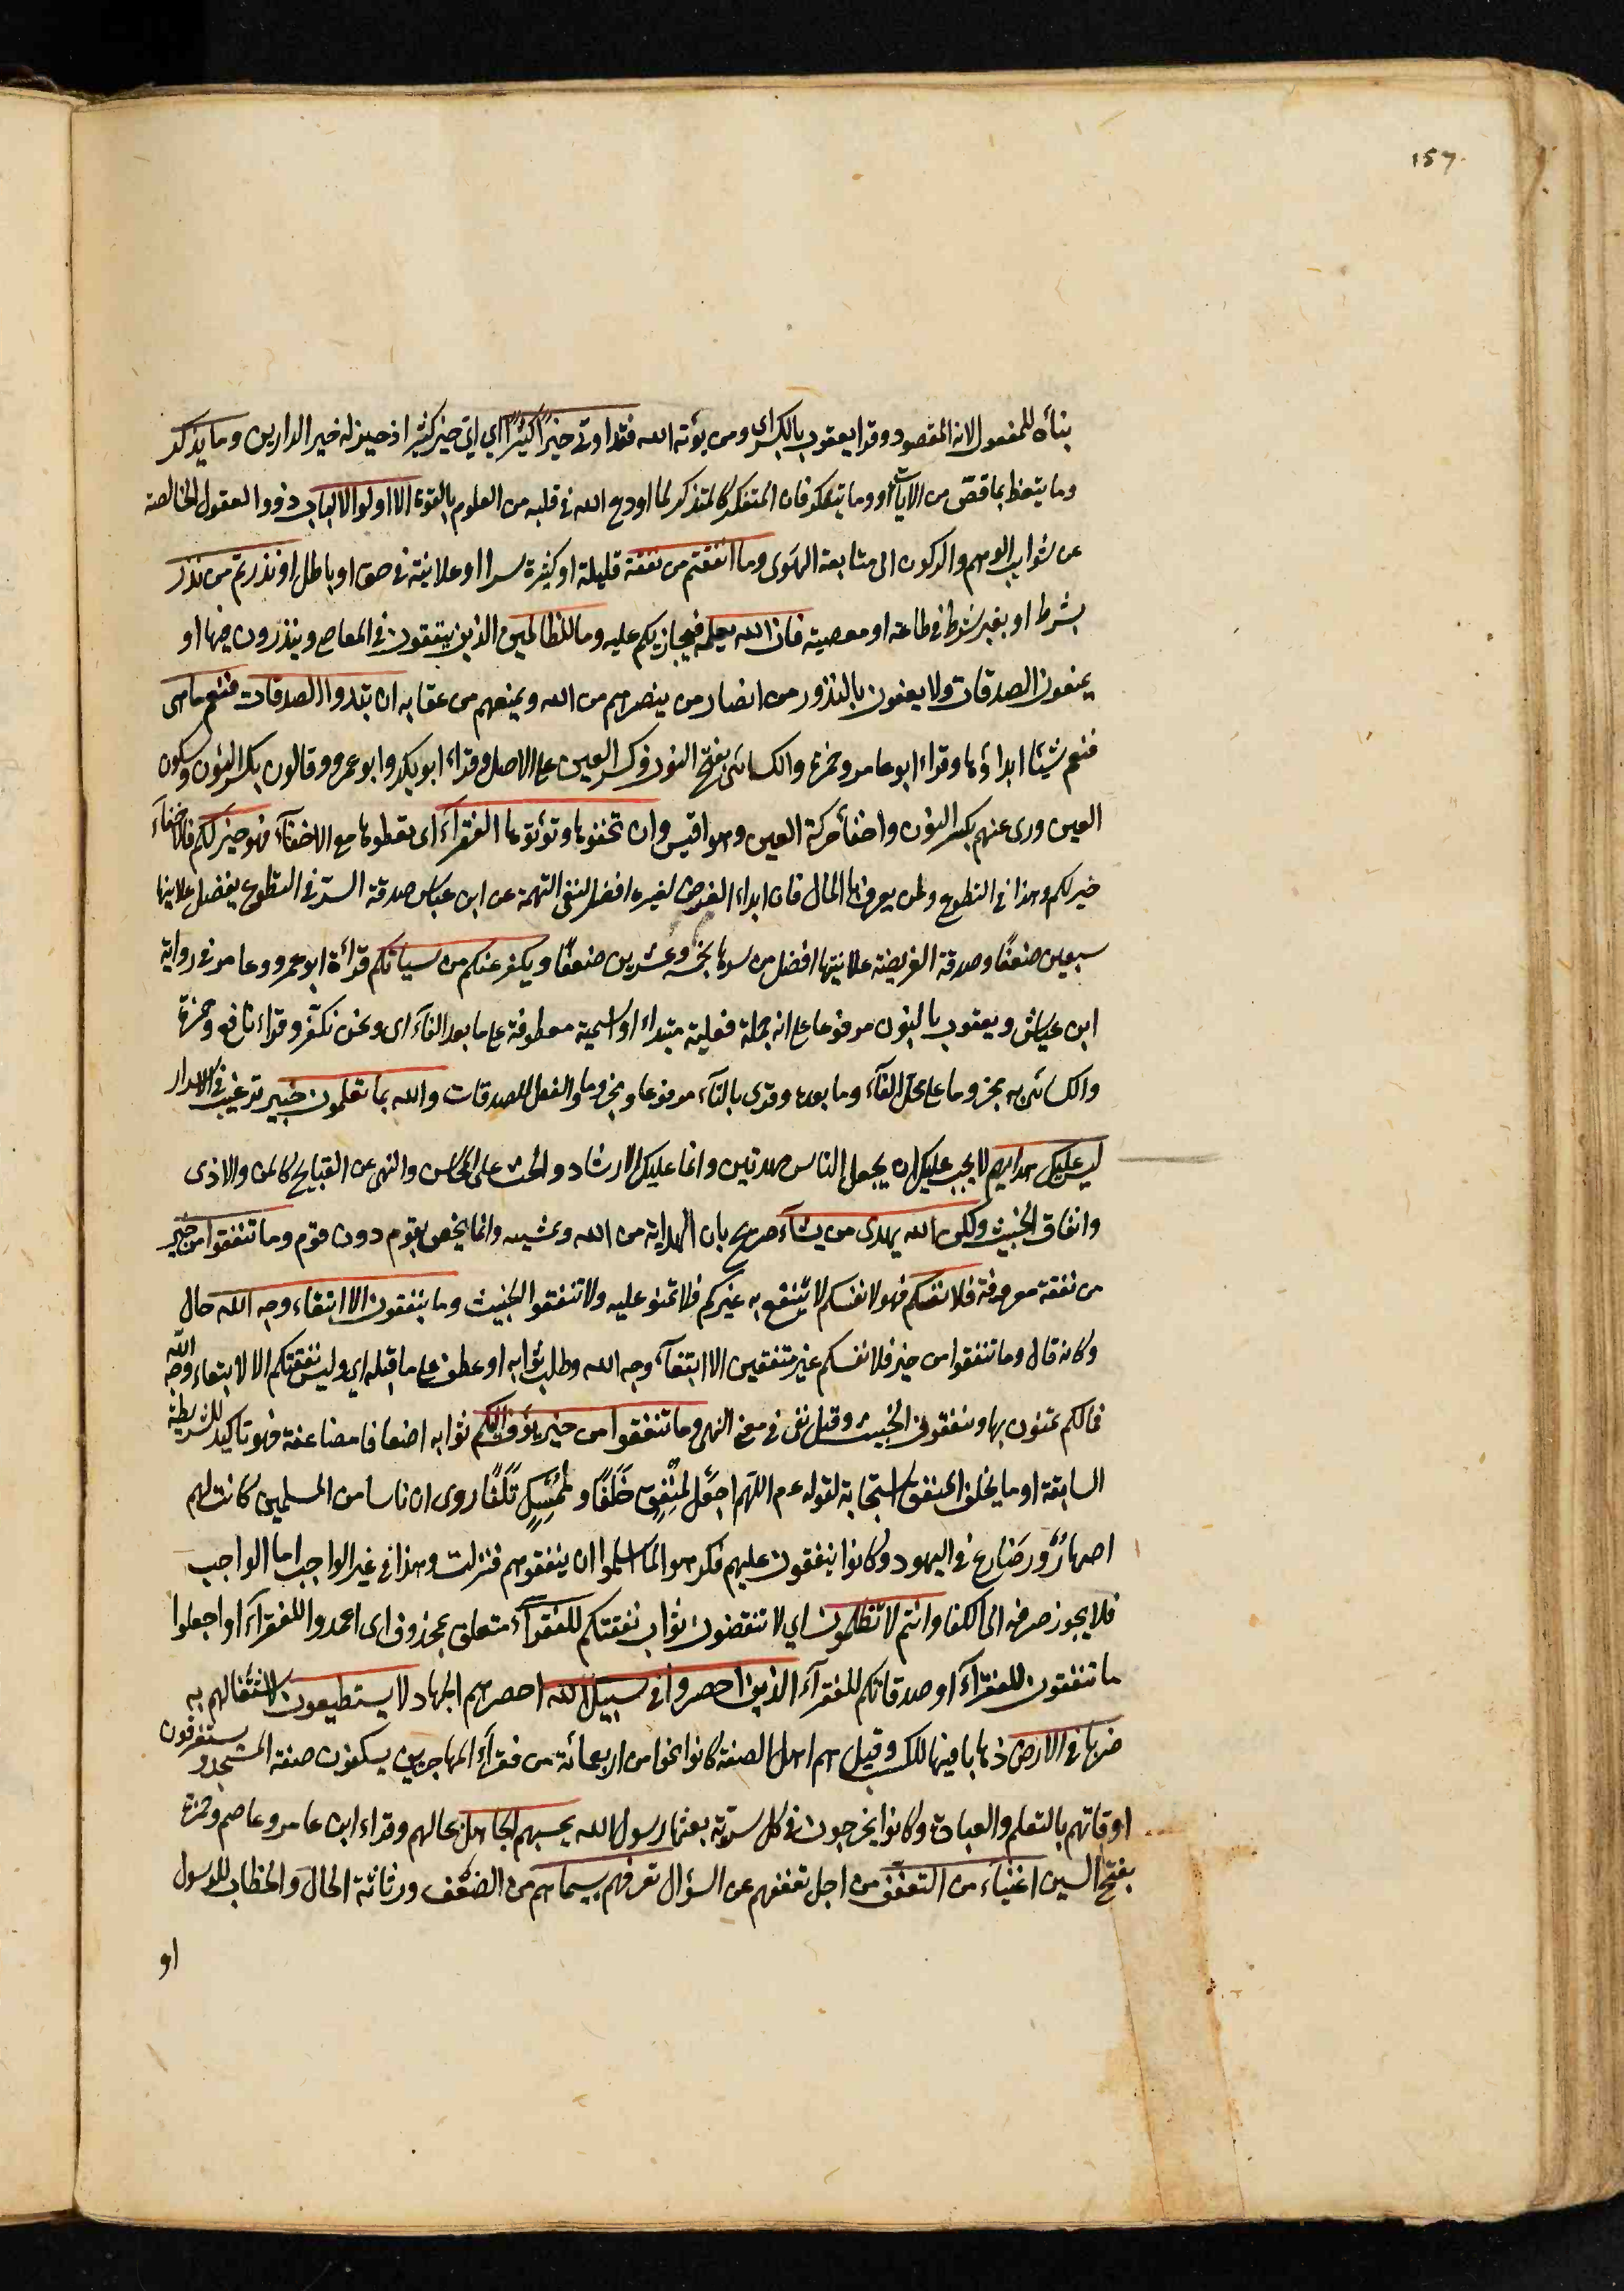 157
بناؤه للمفعول لانه المقصود وقرأ يعقوب بالكسر اى ومن يؤته الله فقد اوتى خيرا كثيرا اى اىّ خير كثير اذ حيز له خير الدارين وما يذكر
وما يتعظ بما قص من الآيات او وما يتفكر فان المتفكر كالمتذكر لما اودع الله فى قلبه من العلوم بالقوة الا اولوا الالباب ذووا العقول الخالصة
عن شوايب الوهم والركون الى متابعة الهوى وما انفقتم من نفقة قليلة او كثيرة سرا او علانية فى حق او باطل او نذرتم من نذر
بشرط او بغير شرط فى طاعة او معصية فان الله يعلمه فيجازيكم عليه وما للظالمين الذين ينفقون فى المعاصى وينذرون فيها او
يمنعون الصدقات ولا يعفون بالنذور من انصار من ينصرهم من الله ويمنعهم من عقابه ان تبدوا الصدقات فنعما هى
فنعم شيئا ابداؤها وقراء ابو عامر وحمزة والكسائى بفتح النون وكسر العين على الاصل وقراء ابو بكر وابو عمرو وقالون بكسر النون وسكون
العين وروى عنهم بكسر النون واخفاء حركة العين وهو اقيس وان تخفوها وتؤتوها الفقرآء اى تعطوها مع الاخفآء فهو خير لكم فالاخفاء
خير لكم وهذا فى التطوع ولمن يعرف بالمال فان ابداء الفرض لغيره افضل لنفى التهمة عن ابن عباس صدقة السر فى التطوع يفضل علانيتها
سبعين ضعفًا وصدقة الفريضة علانيتها افضل من سرها بخمسة وعشرين ضعفًا ويكفر عنكم من سياتكم قرأة ابو عمرو وعامر فى رواية
ابن عياش ويعقوب بالنون مرفوعا على انه جملة فعلية مبتداء او اسمية معطوفة على ما بعد الفآء اى ونحن نكفر وقراء نافع وحمزة
والكسائى به مجزوما على محل الفآء وما بعده وقرى بالتآء مرفوعا ومجزوما والفعل للصدقات والله بما تعملون خبير ترغيب فى الاسرار
ليس عليك هداهم لا يجب عليك ان يجعل الناس مهديين وانما عليك الارشاد والحث على المحاسن والنهى عن القبايح كالمن والاذى
وانفاق الخبيث ولكن الله يهدى من يشآء صريح بان الهداية من الله وبمشيته وانما يخص بقوم دون قوم وما تنفقوا من خير
من نفقة معروفة فلانفسكم فهو لانفسكم لا ينتفع به غيركم فلا تمنو عليه ولا تنفقوا الخبيث وما ينفقون الا ابتغاء وجه الله حال
وكانه قال وما تنفقوا من خير فلانفسكم غير متفقين الا ابتغآء وجه الله وطلب ثوابه او عطف على ما قبله اى وليس نفقتكم الا لابتغاء وجه الله
فمالكم تمنون بها وينفقون الخبيث وقيل نفى فى معنى النهى وما تنفقوا من خير يوف اليكم ثوابه اضعافا مضاعفة فهو تاكيد للشرطية
السابقة او ما يخلف المنفق استجابة لقوله ع م اللهم اجعل لمنفق خلفًا ولممسك تلفًا روى ان ناسا من المسلمين كانت لهم
اصهار ورضاع فى اليهود وكانوا ينفقون عليهم فكرهوا لما اسلموا ان ينفقوهم فنزلت وهذا فى غير الواجب اما الواجب
فلا يجوز صرفه الى الكفار وانتم لا تظلمون اى لا تنقصون ثواب نفقتكم للفقرآء متعلق بمحذوف اى اعمدوا للفقرآء او اجعلوا
ما تنفقون للفقرآء او صدقاتكم للفقرآء الذين احصروا فى سبيل الله احصرهم الجهاد لا يستطيعون لاشتغالهم به
ضربا فى الارض ذهابا فيها للكسب وقيل هم اهل الصفة كانوا نحوا من اربعمائة من فقرآء المهاجرين يسكنون صفة المسجد و يستغرقون
اوقاتهم بالتعلم والعبادة وكانوا يخرجون فى كل سرية بعثها رسول الله يحسبهم الجاهل بحالهم وقراء ابن عامر وعاصم وحمزة
بفتح السين اغنياء من التعفف من اجل تعففهم عن السؤال تعرفهم بسيماهم من الضعف ورثاثة الحال والخطاب للرسول
او